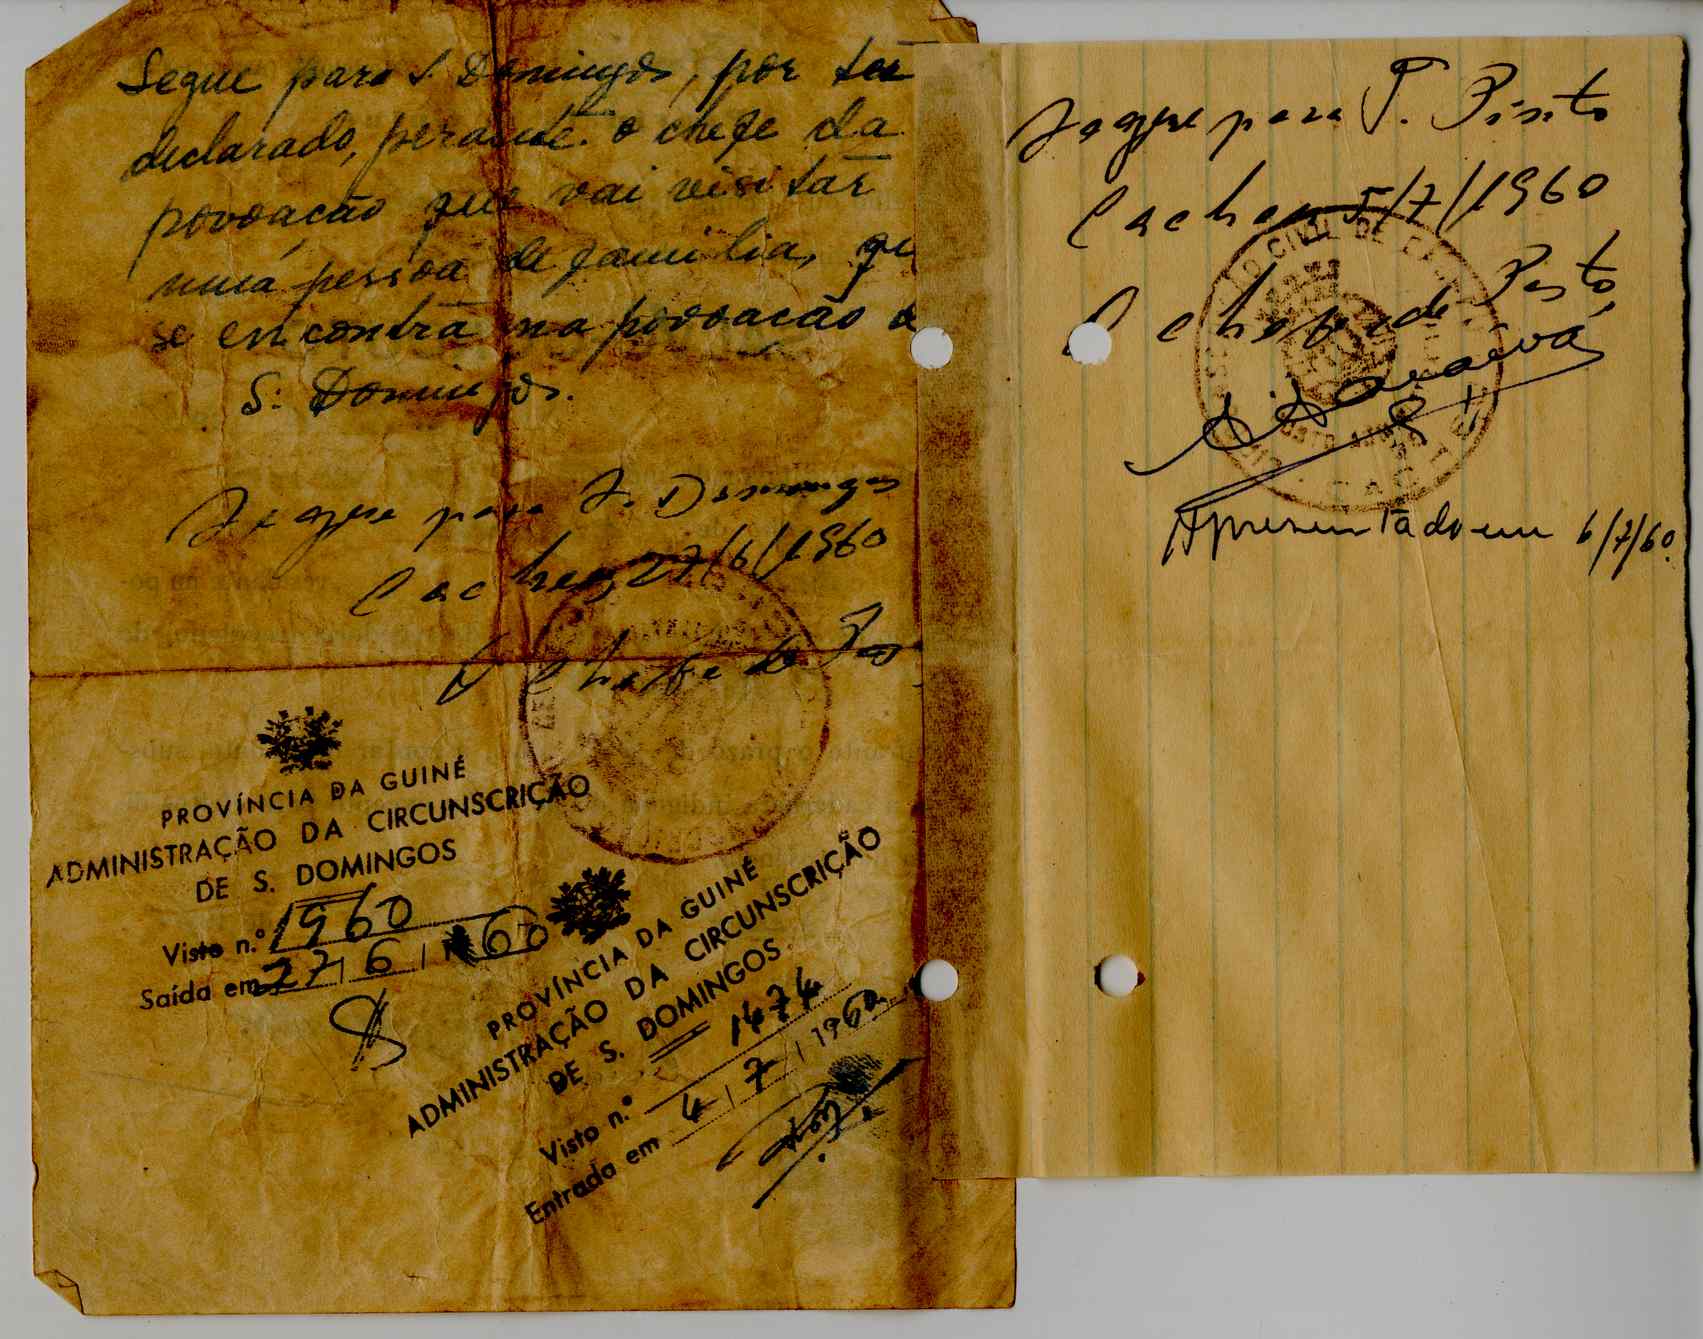 Segue para S. Domingos, por ter
declarado, perante o chefe da
povoacão que vai visitar
uma pessoa de familia, qu
se encontra na povoacão d
S. Domingos.
Segue para S. Domingos
Cacheu, 27/6/1960
O Chefe do Pos
PROVÍNCIA DA GUINÉ
ADMINISTRAÇÃO DA CIRCUNSCRIÇÃO
DE S. DOMINGOS
Visto n.º 1960
Saída em 27/6/1960
PROVÍNCIA DA GUINÉ
ADMINISTRAÇÃO DA CIRCUNSCRIÇÃO
DE S. DOMINGOS
Visto n.º 1474
Entrada em 4/7/1960
Segue para T. Pinto
Cacheu 5/7/1960
O Chefe de Posto,
Apresentado em 6/7/60.